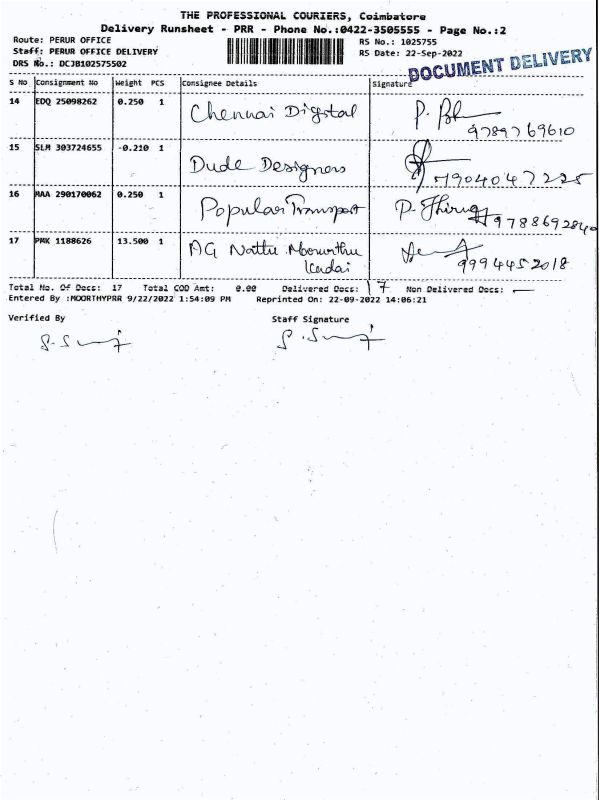 THE PROFESSIONAL COURIERS, Coimbatore
Delivery Runsheet - PRR - Phone No.:0422-3505555 - Page No.:2
Route: PERUR OFFICE
Staff: PERUR OFFICE DELIVERY
DRS No.: DCJB102575502
RS No.: 1025755
RS Date: 22-Sep-2022
DOCUMENT DELIVERY
S No Consignment No Weight PCS Consignee Details Signature
14 EDQ 25098262 0.250 1 Chennai Digital P. 9789769610
15 SLM 303724655 -0.210 1 Dude Designers 7904047225
16 MAA 290170062 0.250 1 Popular Transport P. Thirug 9788692840
17 PMK 1188626 13.500 1 AG Nattu Moorunthu
Kadai 9994452018
Total No. Of Docs: 17 Total COD Amt: 0.00 Delivered Docs: 17 Non Delivered Docs: —
Entered By :MOORTHYPRR 9/22/2022 1:54:09 PM Reprinted On: 22-09-2022 14:06:21
Verified By Staff Signature